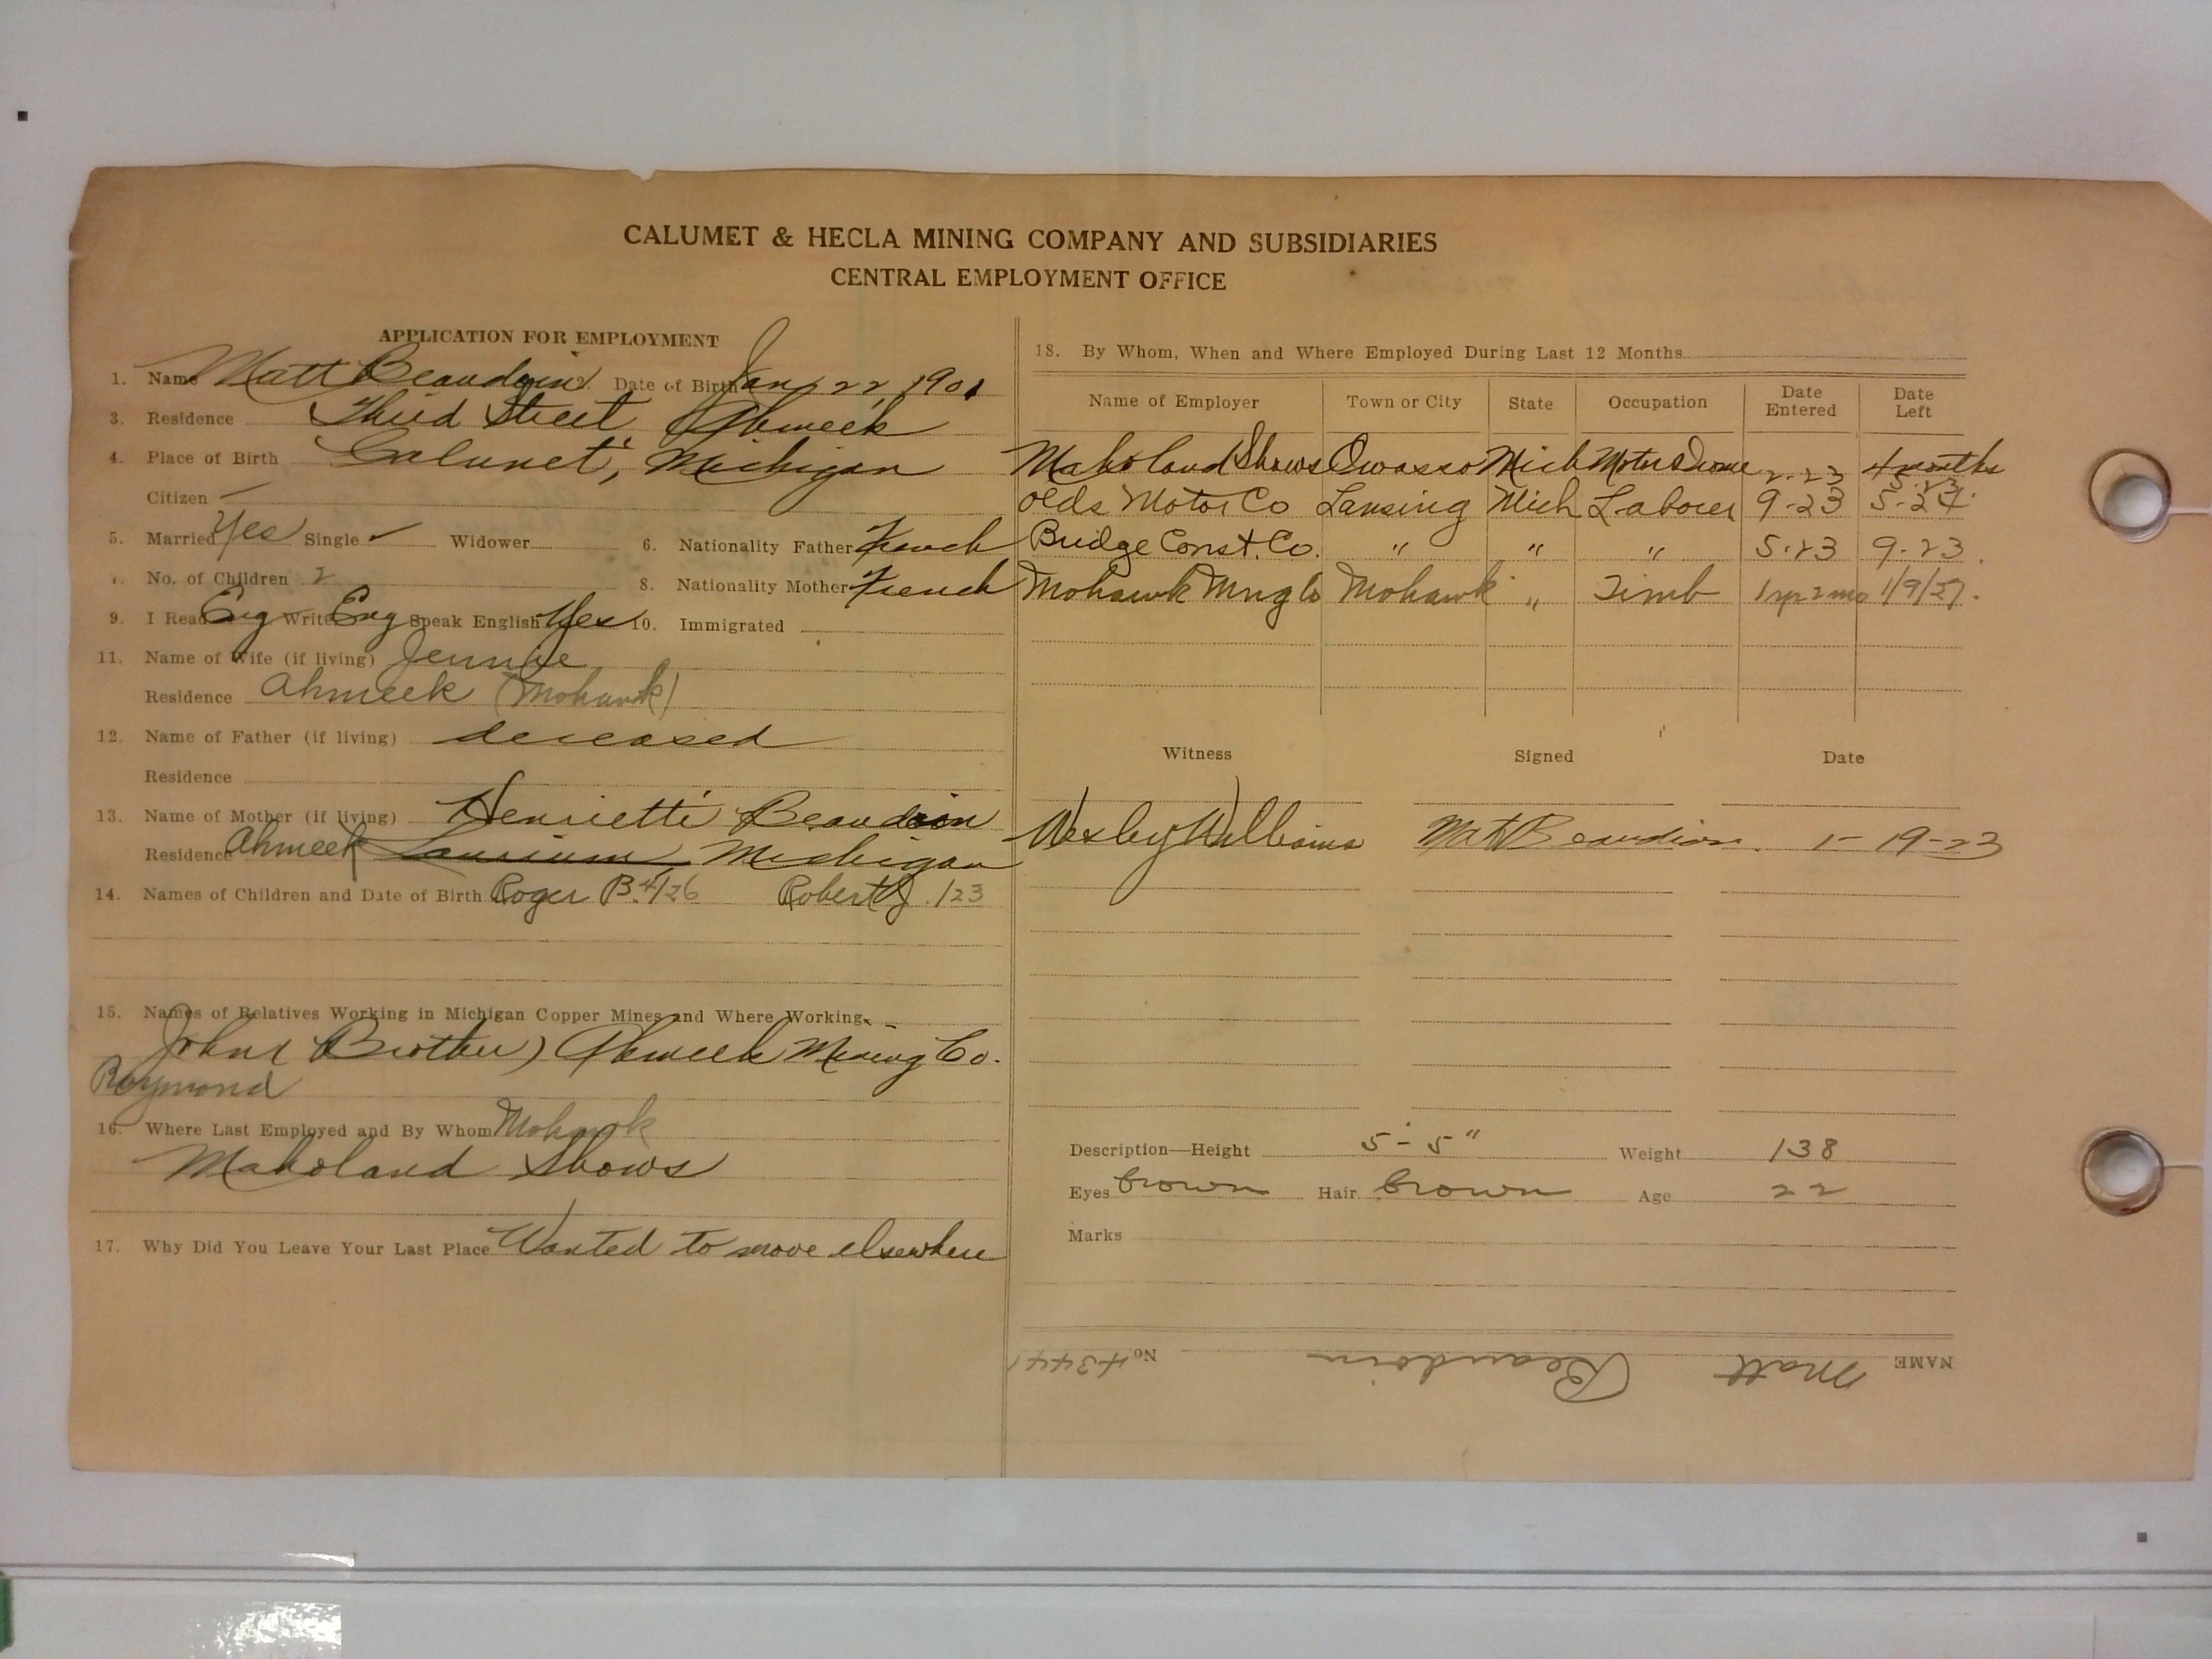 CALUMET & HECLA MINING COMPANY AND SUBSIDIARIES
CENTRAL EMPLOYMENT OFFICE
APPLICATION FOR EMPLOYMENT
1. Name Matt Beaudoin Date of Birth Jan 22 1901
3. Residence Third Street Ahmeek
4. Place of Birth Calumet, Michigan
Citizen —
5. Married Yes Single ✓ Widower 6. Nationality Father French
7. No. of Children 2 8. Nationality Mother French
9. I Read Eng Write Eng Speak English Yes 10. Immigrated
11. Name of Wife (if living) Jennie
Residence Ahmeek (Mohawk)
12. Name of Father (if living) deceased
Residence
13. Name of Mother (if living) Henrietti Beaudoin
Residence Ahmeek Laurium Michigan
14. Names of Children and Date of Birth Roger B. 4/26 Robert J. /23
15. Names of Relatives Working in Michigan Copper Mines and Where Working
John (Brother) Ahmeek Mining Co.
Raymond
16. Where Last Employed and By Whom Mohawk
Maholand Shows
17. Why Did You Leave Your Last Place Wanted to move elsewhere
18. By Whom, When and Where Employed During Last 12 Months
Name of Employer Town or City State Occupation Date Entered Date Left
Maholand Shows Owasso Mich Motor Drome 2-23 4 months 5-23
Olds Motor Co Lansing Mich Laborer 9-23 5-24
Bridge Const. Co. " " " 5-23 9-23
Mohawk Mng Co Mohawk " Timb 1 yr 2 mo 1/9/27.
Witness Signed Date
Wesley Williams Matt Beaudion. 1-19-23
Description—Height 5'-5" Weight 138
Eyes brown Hair brown Age 22
Marks
NAME Matt Beaudoin No 43441